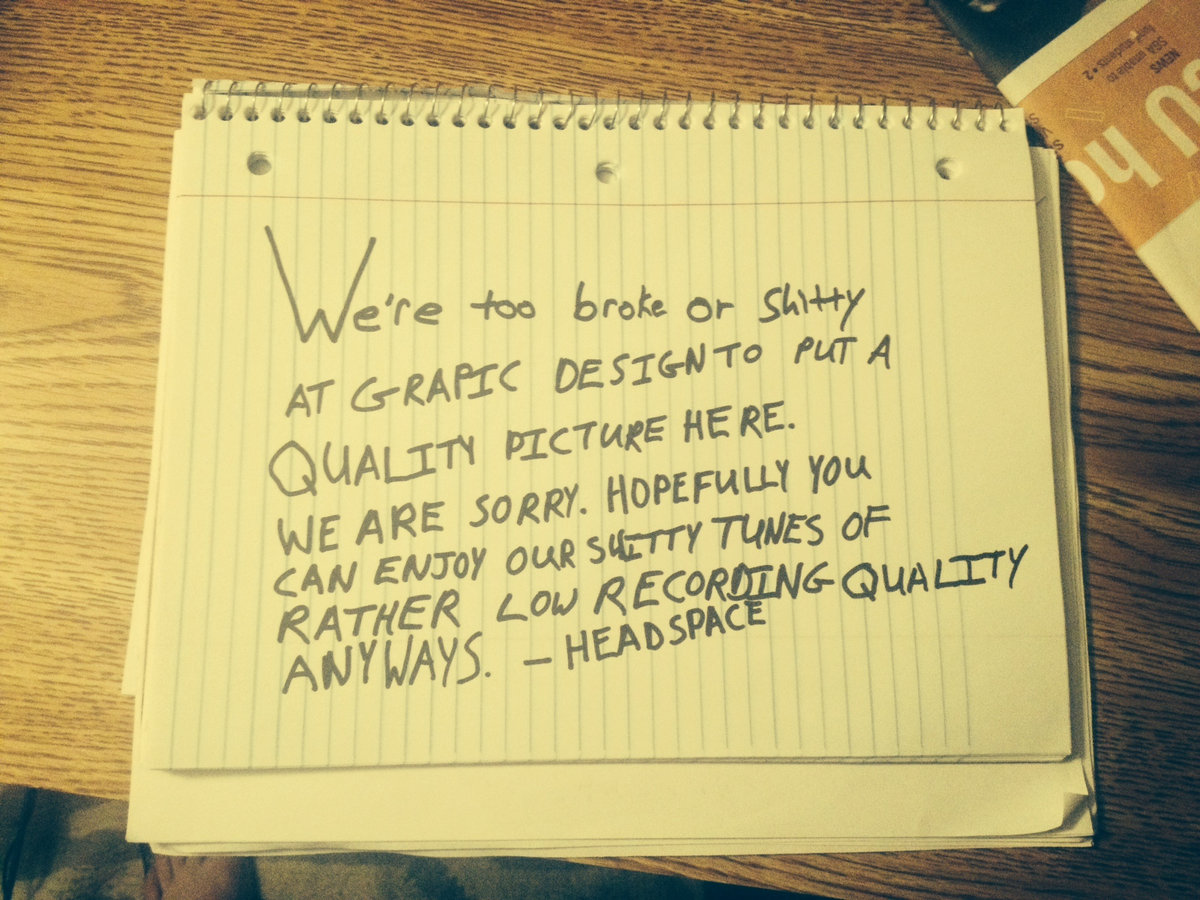 We're too broke or shitty
AT GRAPIC DESIGN TO PUT A
QUALITY PICTURE HERE.
WE ARE SORRY. HOPEFULLY YOU
CAN ENJOY OUR SHITTY TUNES OF
RATHER LOW RECORDING QUALITY
ANYWAYS. – HEADSPACE
NEWS
U ho